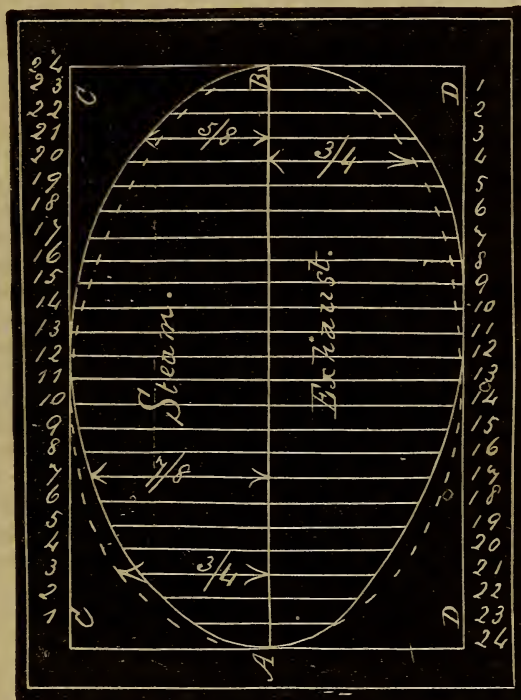 24
23
22
21
20
19
18
17
16
15
14
13
12
11
10
9
8
7
6
5
4
3
2
1
C
B
D
5/8
3/4
Steam.
Exhaust.
7/8
3/4
C
D
A
1
2
3
4
5
6
7
8
9
10
11
12
13
14
15
16
17
18
19
20
21
22
23
24